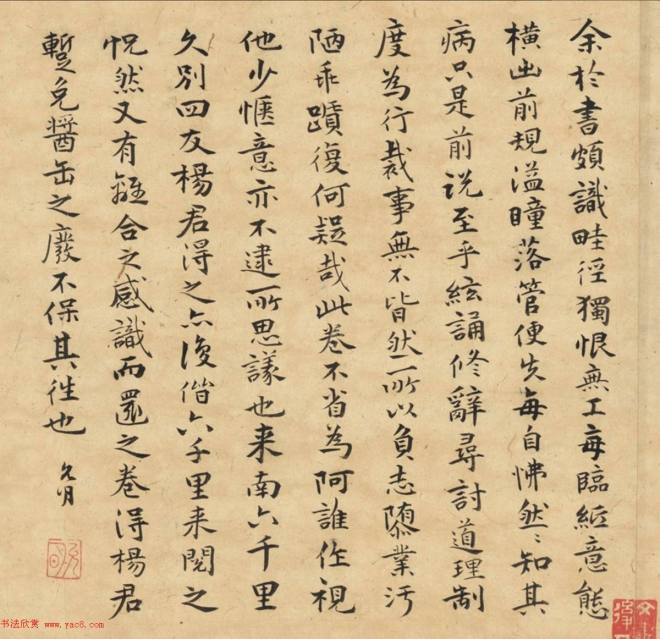 余於書頗識畦徑獨恨無工每臨紙意態
橫出前規溢瞳落管便失每自怫然〻知其
病只是前説至乎絃誦修辭尋討道理制
度為行裁事無不皆然一所以負志隳業汚
陋乖蹟復何疑哉此卷不省為阿誰作視
他少愜意亦不逮所思議也来南六千里
久別四友楊君得之亦復偕六千里来閲之
怳然又有離合之感識而還之卷得楊君
蹔免醬缶之廢不保其徃也 允明
书法欣赏 www.yac8.com